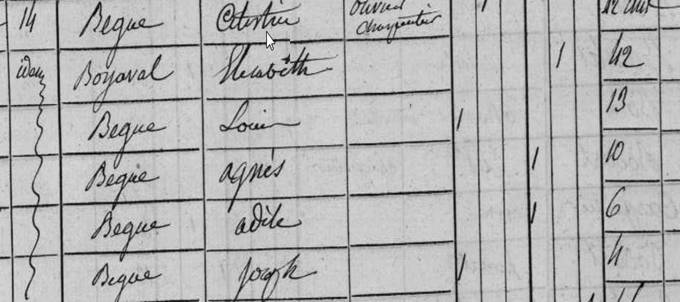 14 Begue Célestin ouvrier charpentier 1 42 ans
idem Boyaval Elisabeth 1 42
Begue Louis 1 13
Begue agnès 1 10
Begue adèle 1 6
Begue joseph 1 4